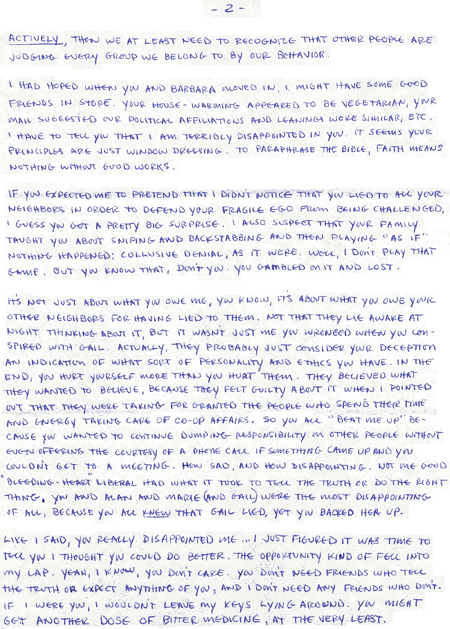 - 2 -
ACTIVELY, THEN WE AT LEAST NEED TO RECOGNIZE THAT OTHER PEOPLE ARE
JUDGING EVERY GROUP WE BELONG TO BY OUR BEHAVIOR.
I HAD HOPED WHEN YOU AND BARBARA MOVED IN, I MIGHT HAVE SOME GOOD
FRIENDS IN STORE. YOUR HOUSE-WARMING APPEARED TO BE VEGETARIAN, YOUR
MAIL SUGGESTED OUR POLITICAL AFFILIATIONS AND LEANINGS WERE SIMILAR, ETC.
I HAVE TO TELL YOU THAT I AM TERRIBLY DISAPPOINTED IN YOU. IT SEEMS YOUR
PRINCIPLES ARE JUST WINDOW DRESSING. TO PARAPHRASE THE BIBLE, FAITH MEANS
NOTHING WITHOUT GOOD WORKS.
IF YOU EXPECTED ME TO PRETEND THAT I DIDN'T NOTICE THAT YOU LIED TO ALL YOUR
NEIGHBORS IN ORDER TO DEFEND YOUR FRAGILE EGO FROM BEING CHALLENGED,
I GUESS YOU GOT A PRETTY BIG SURPRISE. I ALSO SUSPECT THAT YOUR FAMILY
TAUGHT YOU ABOUT SNIPING AND BACKSTABBING AND THEN PLAYING "AS IF"
NOTHING HAPPENED; COLLUSIVE DENIAL, AS IT WERE. WELL, I DON'T PLAY THAT
GAME. BUT YOU KNOW THAT, DON'T YOU. YOU GAMBLED ON IT AND LOST.
IT'S NOT JUST ABOUT WHAT YOU OWE ME, YOU KNOW, IT'S ABOUT WHAT YOU OWE YOUR
OTHER NEIGHBORS FOR HAVING LIED TO THEM. NOT THAT THEY LIE AWAKE AT
NIGHT THINKING ABOUT IT, BUT IT WASN'T JUST ME YOU WRONGED WHEN YOU CON-
SPIRED WITH GAIL. ACTUALLY, THEY PROBABLY JUST CONSIDER YOUR DECEPTION
AN INDICATION OF WHAT SORT OF PERSONALITY AND ETHICS YOU HAVE. IN THE
END, YOU HURT YOURSELF MORE THAN YOU HURT THEM. THEY BELIEVED WHAT
THEY WANTED TO BELIEVE, BECAUSE THEY FELT GUILTY ABOUT IT WHEN I POINTED
OUT THAT THEY WERE TAKING FOR GRANTED THE PEOPLE WHO SPEND THEIR TIME
AND ENERGY TAKING CARE OF CO-OP AFFAIRS. SO YOU ALL "BEAT ME UP" BE-
CAUSE YOU WANTED TO CONTINUE DUMPING RESPONSIBILITY ON OTHER PEOPLE WITHOUT
EVEN OFFERING THE COURTESY OF A PHONE CALL IF SOMETHING CAME UP AND YOU
COULDN'T GET TO A MEETING. HOW SAD, AND HOW DISAPPOINTING. NOT ONE GOOD
"BLEEDING-HEART" LIBERAL HAD WHAT IT TOOK TO TELL THE TRUTH OR DO THE RIGHT
THING. YOU AND ALAN AND MARIE (AND GAIL) WERE THE MOST DISAPPOINTING
OF ALL, BECAUSE YOU ALL KNEW THAT GAIL LIED, YET YOU BACKED HER UP.
LIKE I SAID, YOU REALLY DISAPPOINTED ME... I JUST FIGURED IT WAS TIME TO
TELL YOU I THOUGHT YOU COULD DO BETTER. THE OPPORTUNITY KIND OF FELL INTO
MY LAP. YEAH, I KNOW, YOU DON'T CARE. YOU DON'T NEED FRIENDS WHO TELL
THE TRUTH OR EXPECT ANYTHING OF YOU, AND I DON'T NEED ANY FRIENDS WHO DON'T.
IF I WERE YOU, I WOULDN'T LEAVE MY KEYS LYING AROUND. YOU MIGHT
GET ANOTHER DOSE OF BITTER MEDICINE, AT THE VERY LEAST.